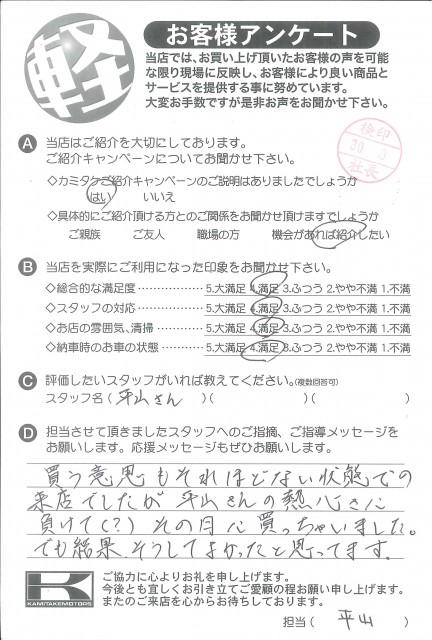 軽
お客様アンケート
当店では、お買い上げ頂いたお客様の声を可能
な限り現場に反映し、お客様により良い商品と
サービスを提供する事に努めています。
大変お手数ですが是非お声をお聞かせ下さい。
検印
30. 3
社長
A 当店はご紹介を大切にしております。
ご紹介キャンペーンについてお聞かせ下さい。
◇カミタケご紹介キャンペーンのご説明はありましたでしょうか
はい いいえ
◇具体的にご紹介頂ける方とのご関係をお聞かせ頂けますでしょうか
ご親族 ご友人 職場の方 機会があれば紹介したい
B 当店を実際にご利用になった印象をお聞かせ下さい。
◇総合的な満足度 ……………… 5.大満足 4.満足 3.ふつう 2.やや不満 1.不満
◇スタッフの対応 ……………… 5.大満足 4.満足 3.ふつう 2.やや不満 1.不満
◇お店の雰囲気、清掃 ………… 5.大満足 4.満足 3.ふつう 2.やや不満 1.不満
◇納車時のお車の状態 ………… 5.大満足 4.満足 3.ふつう 2.やや不満 1.不満
C 評価したいスタッフがいれば教えてください。(複数回答可)
スタッフ名 ( 平山さん )( )( )
D 担当させて頂きましたスタッフへのご指摘、ご指導メッセージを
お願いします。応援メッセージもぜひお願いします。
買う意思もそれほどない状態での
来店でしたが平山さんの熱心さに
負けて(?) その日に買っちゃいました。
でも結果そうしてよかったと思ってます。
K
KAMITAKEMOTORS
ご協力に心よりお礼を申し上げます。
今後とも宜しくお引き立てご愛顧の程お願い申し上げます。
またのご来店を心からお待ちしております。
担当 ( 平山 )